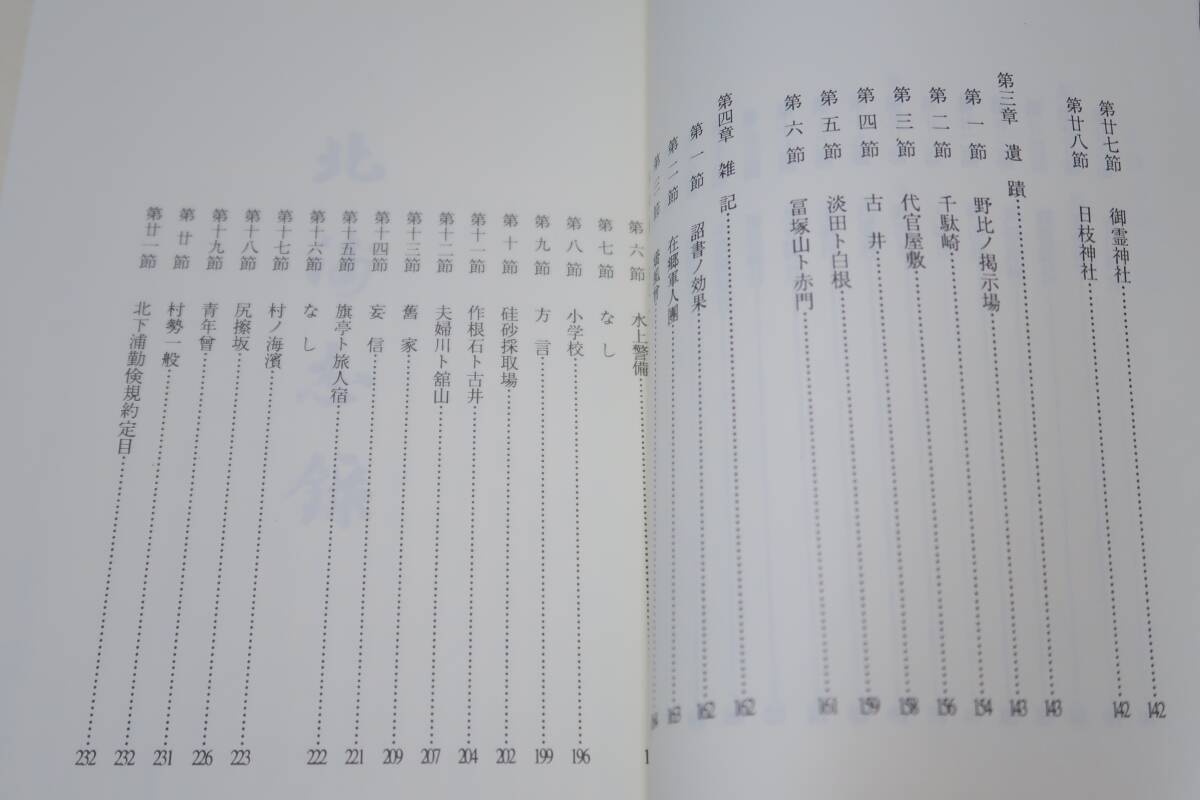 第廿七節 御霊神社……142
第廿八節 日枝神社……142
第三章 遺蹟……143
第一節 野比ノ掲示場……143
第二節 千駄崎……154
第三節 代官屋敷……156
第四節 古井……158
第五節 淡田ト白根……159
第六節 冨塚山ト赤門……161
第四章 雑記……162
第一節 詔書ノ効果……162
第二節 在郷軍人團……163
第三節
第六節 水上警備……1
第七節 なし
第八節 小学校……196
第九節 方言……199
第十節 硅砂採取場……202
第十一節 作根石ト古井……204
第十二節 夫婦川ト舘山……207
第十三節 舊家……209
第十四節 妄信……221
第十五節 旗亭ト旅人宿……222
第十六節 なし
第十七節 村ノ海濱……223
第十八節 尻擦坂……226
第十九節 青年會……231
第廿節 村勢一般……232
第廿一節 北下浦勤倹規約定目……232